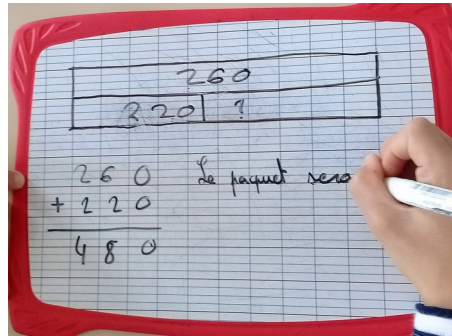 260
220 ?
260
+ 220
480
Le paquet sera